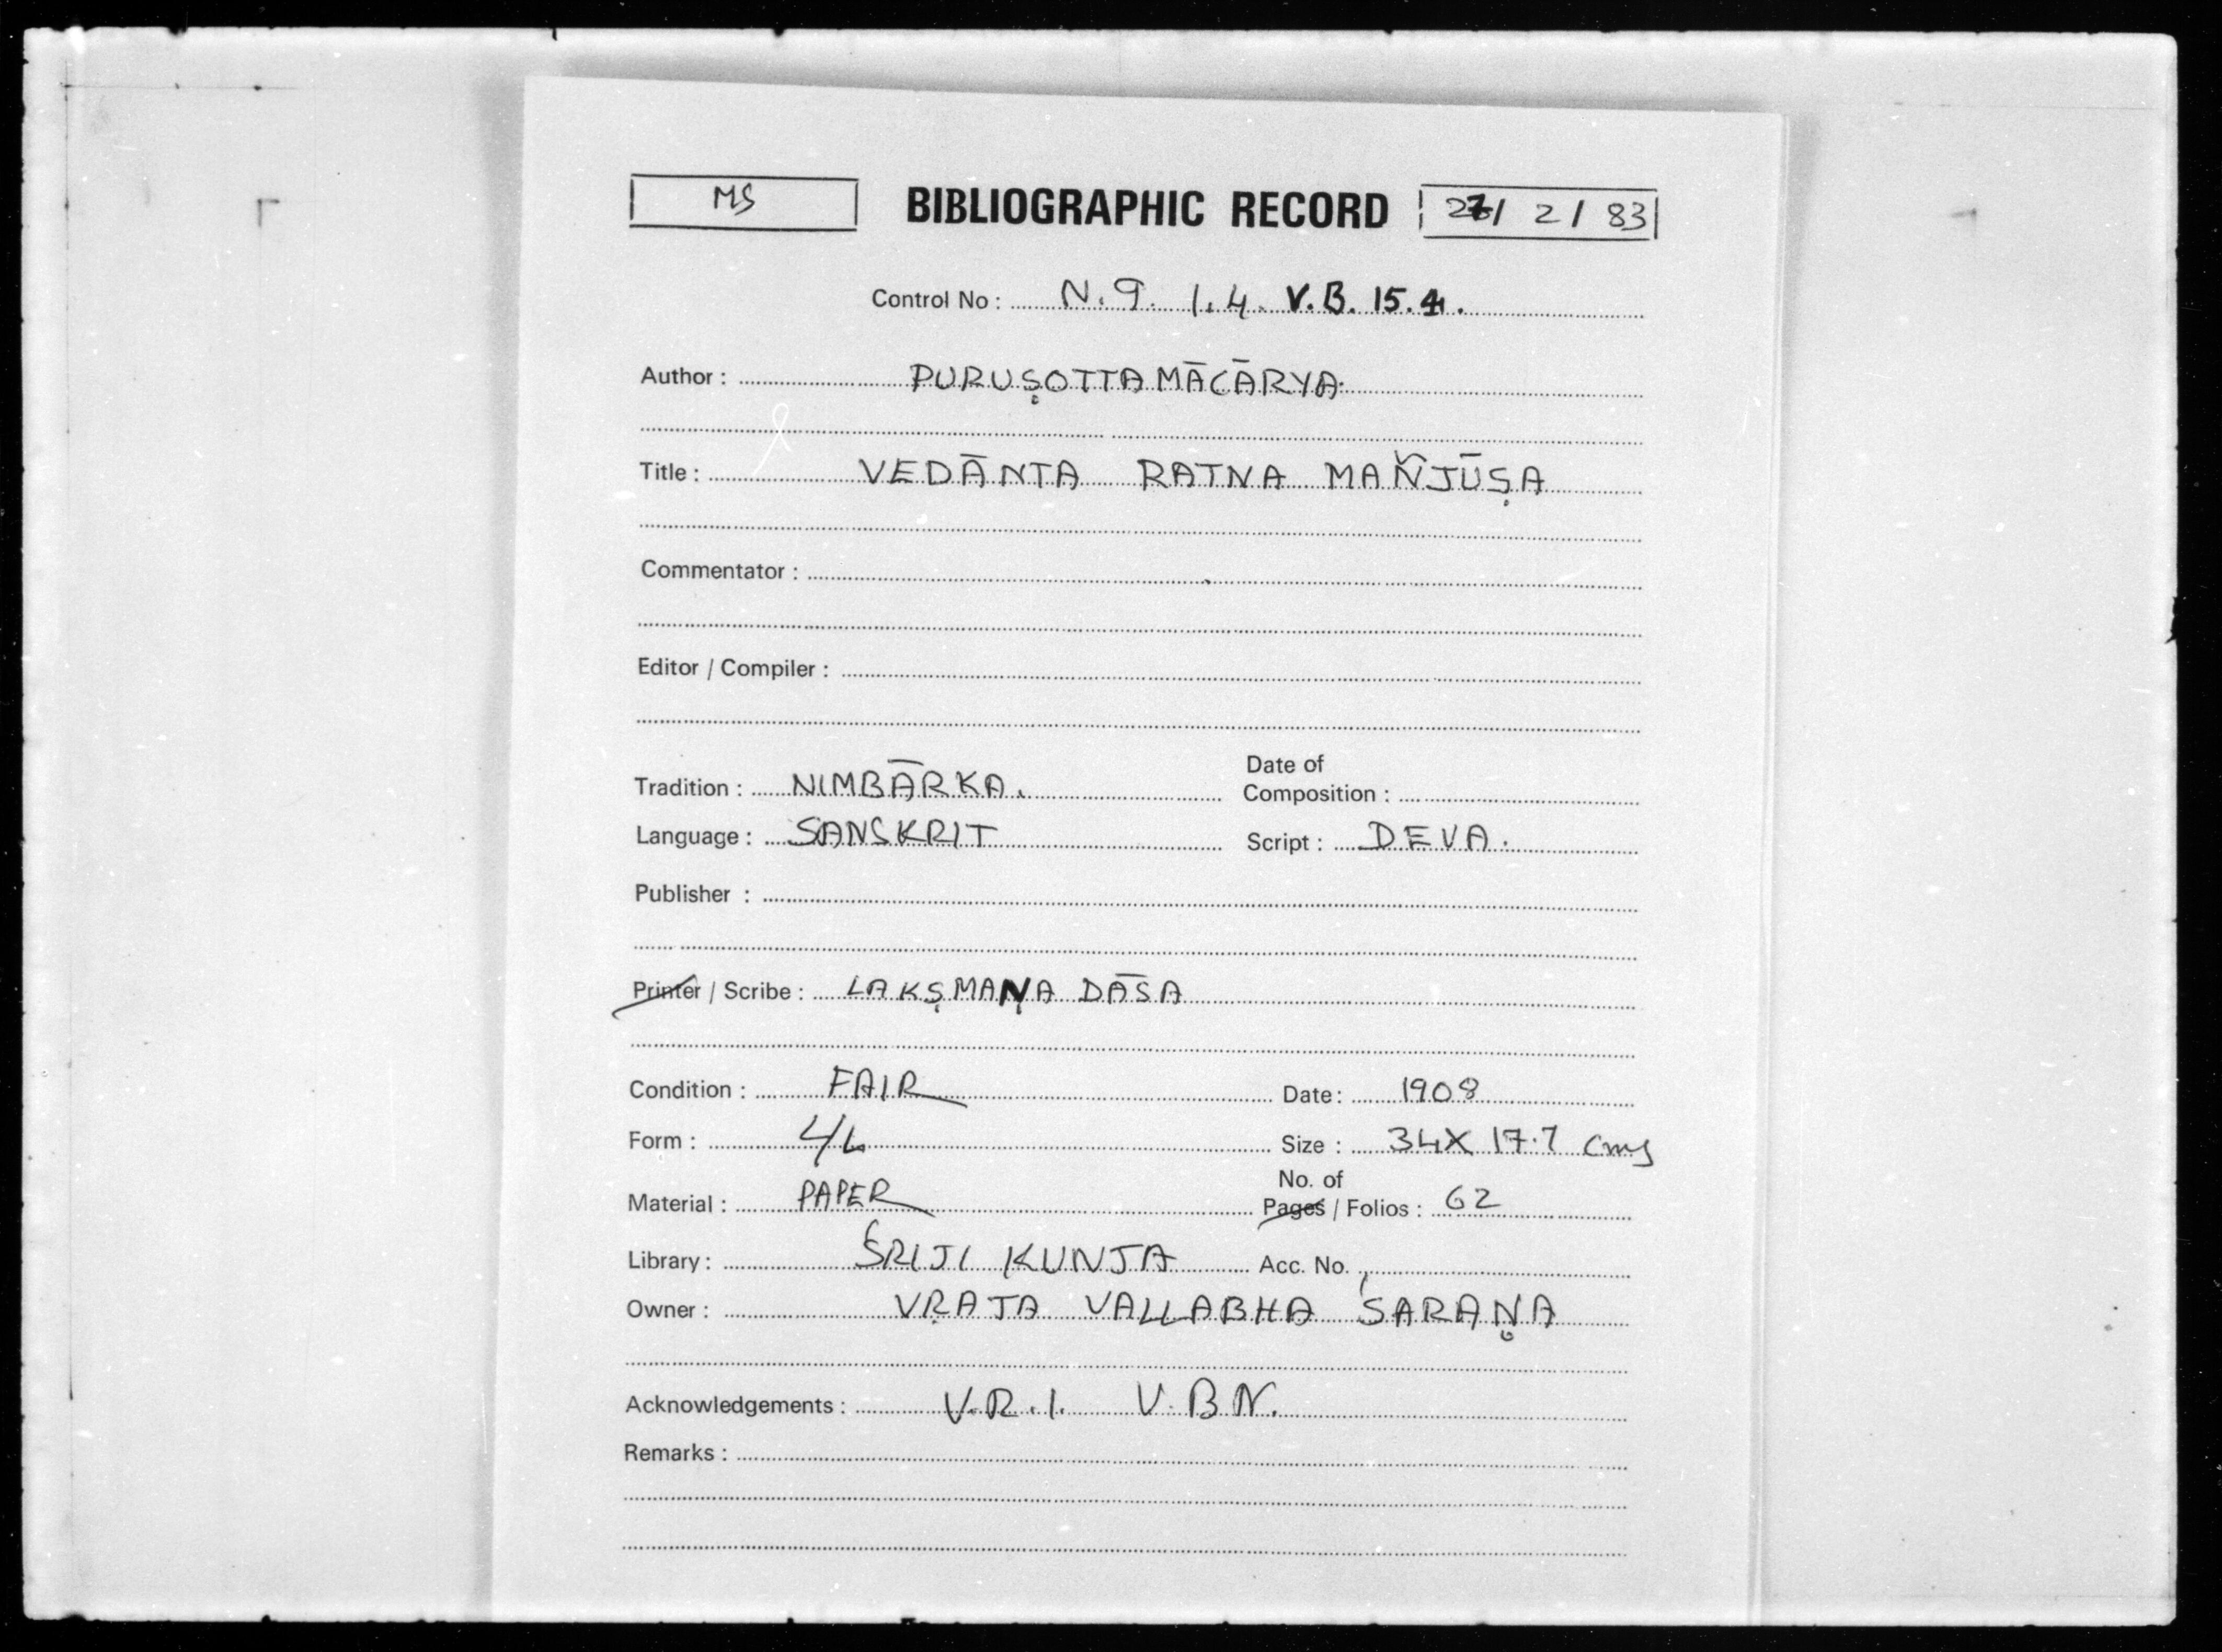 MS BIBLIOGRAPHIC RECORD 27/ 2 / 83
Control No : N. 9. 1.4. V.B. 15.4.
Author : PURUṢOTTAMĀCĀRYA
Title : VEDĀNTA RATNA MAÑJŪṢA
Commentator :
Editor / Compiler :
Tradition : NIMBĀRKA. Date of Composition :
Language : SANSKRIT Script : DEVA.
Publisher :
Printer / Scribe : LAKṢMAṆA DĀSA
Condition : FAIR Date : 1908
Form : 4/L Size : 34X 17.7 cms
Material : PAPER No. of Pages / Folios : 62
Library : ŚRIJI KUNJA Acc. No.
Owner : VṚAJA VALLABHA ŚARAṆA
Acknowledgements : V.R.I. V.B.N.
Remarks :